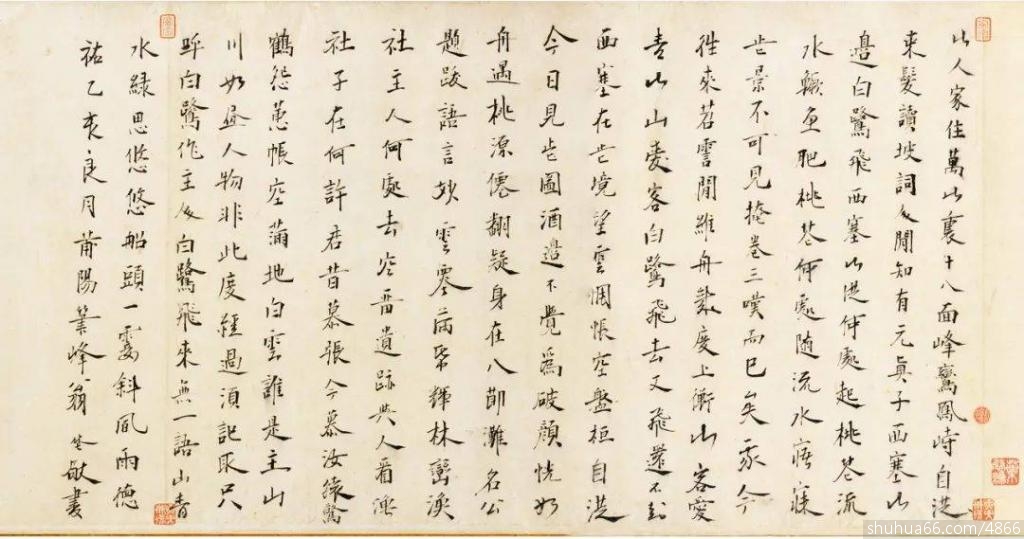 山人家住萬山裏十八面峰鸞鳳峙自從
束髮讀坡詞又聞知有元真子西塞山
邊白鷺飛西塞山從何處起桃花流
水鱖魚肥桃花何處隨流水寤寐
此景不可見掩卷三嘆而已矣我今
往來苕霅間維舟數度上衡山客愛
青山山愛客白鷺飛去又飛還不到
西塞在此境望雲惆悵空盤桓自從
今日見此圖酒邊不覺為破顏恍如
舟遇桃源僊翻疑身在八節灘名公
題跋語言妙雲零輝林巒漁
社主人何處去空留遺跡與人看漁
社子在何許君昔慕張今慕汝猿驚
鶴怨蕙帳空滿地白雲誰是主山
川如人物非此度經過須記取只
呼白鷺作主白鷺飛來無一語山青
水綠思悠悠船頭一霎斜風雨德
祐乙亥良月莆陽峰翁敬書
shuhua66.com/4866